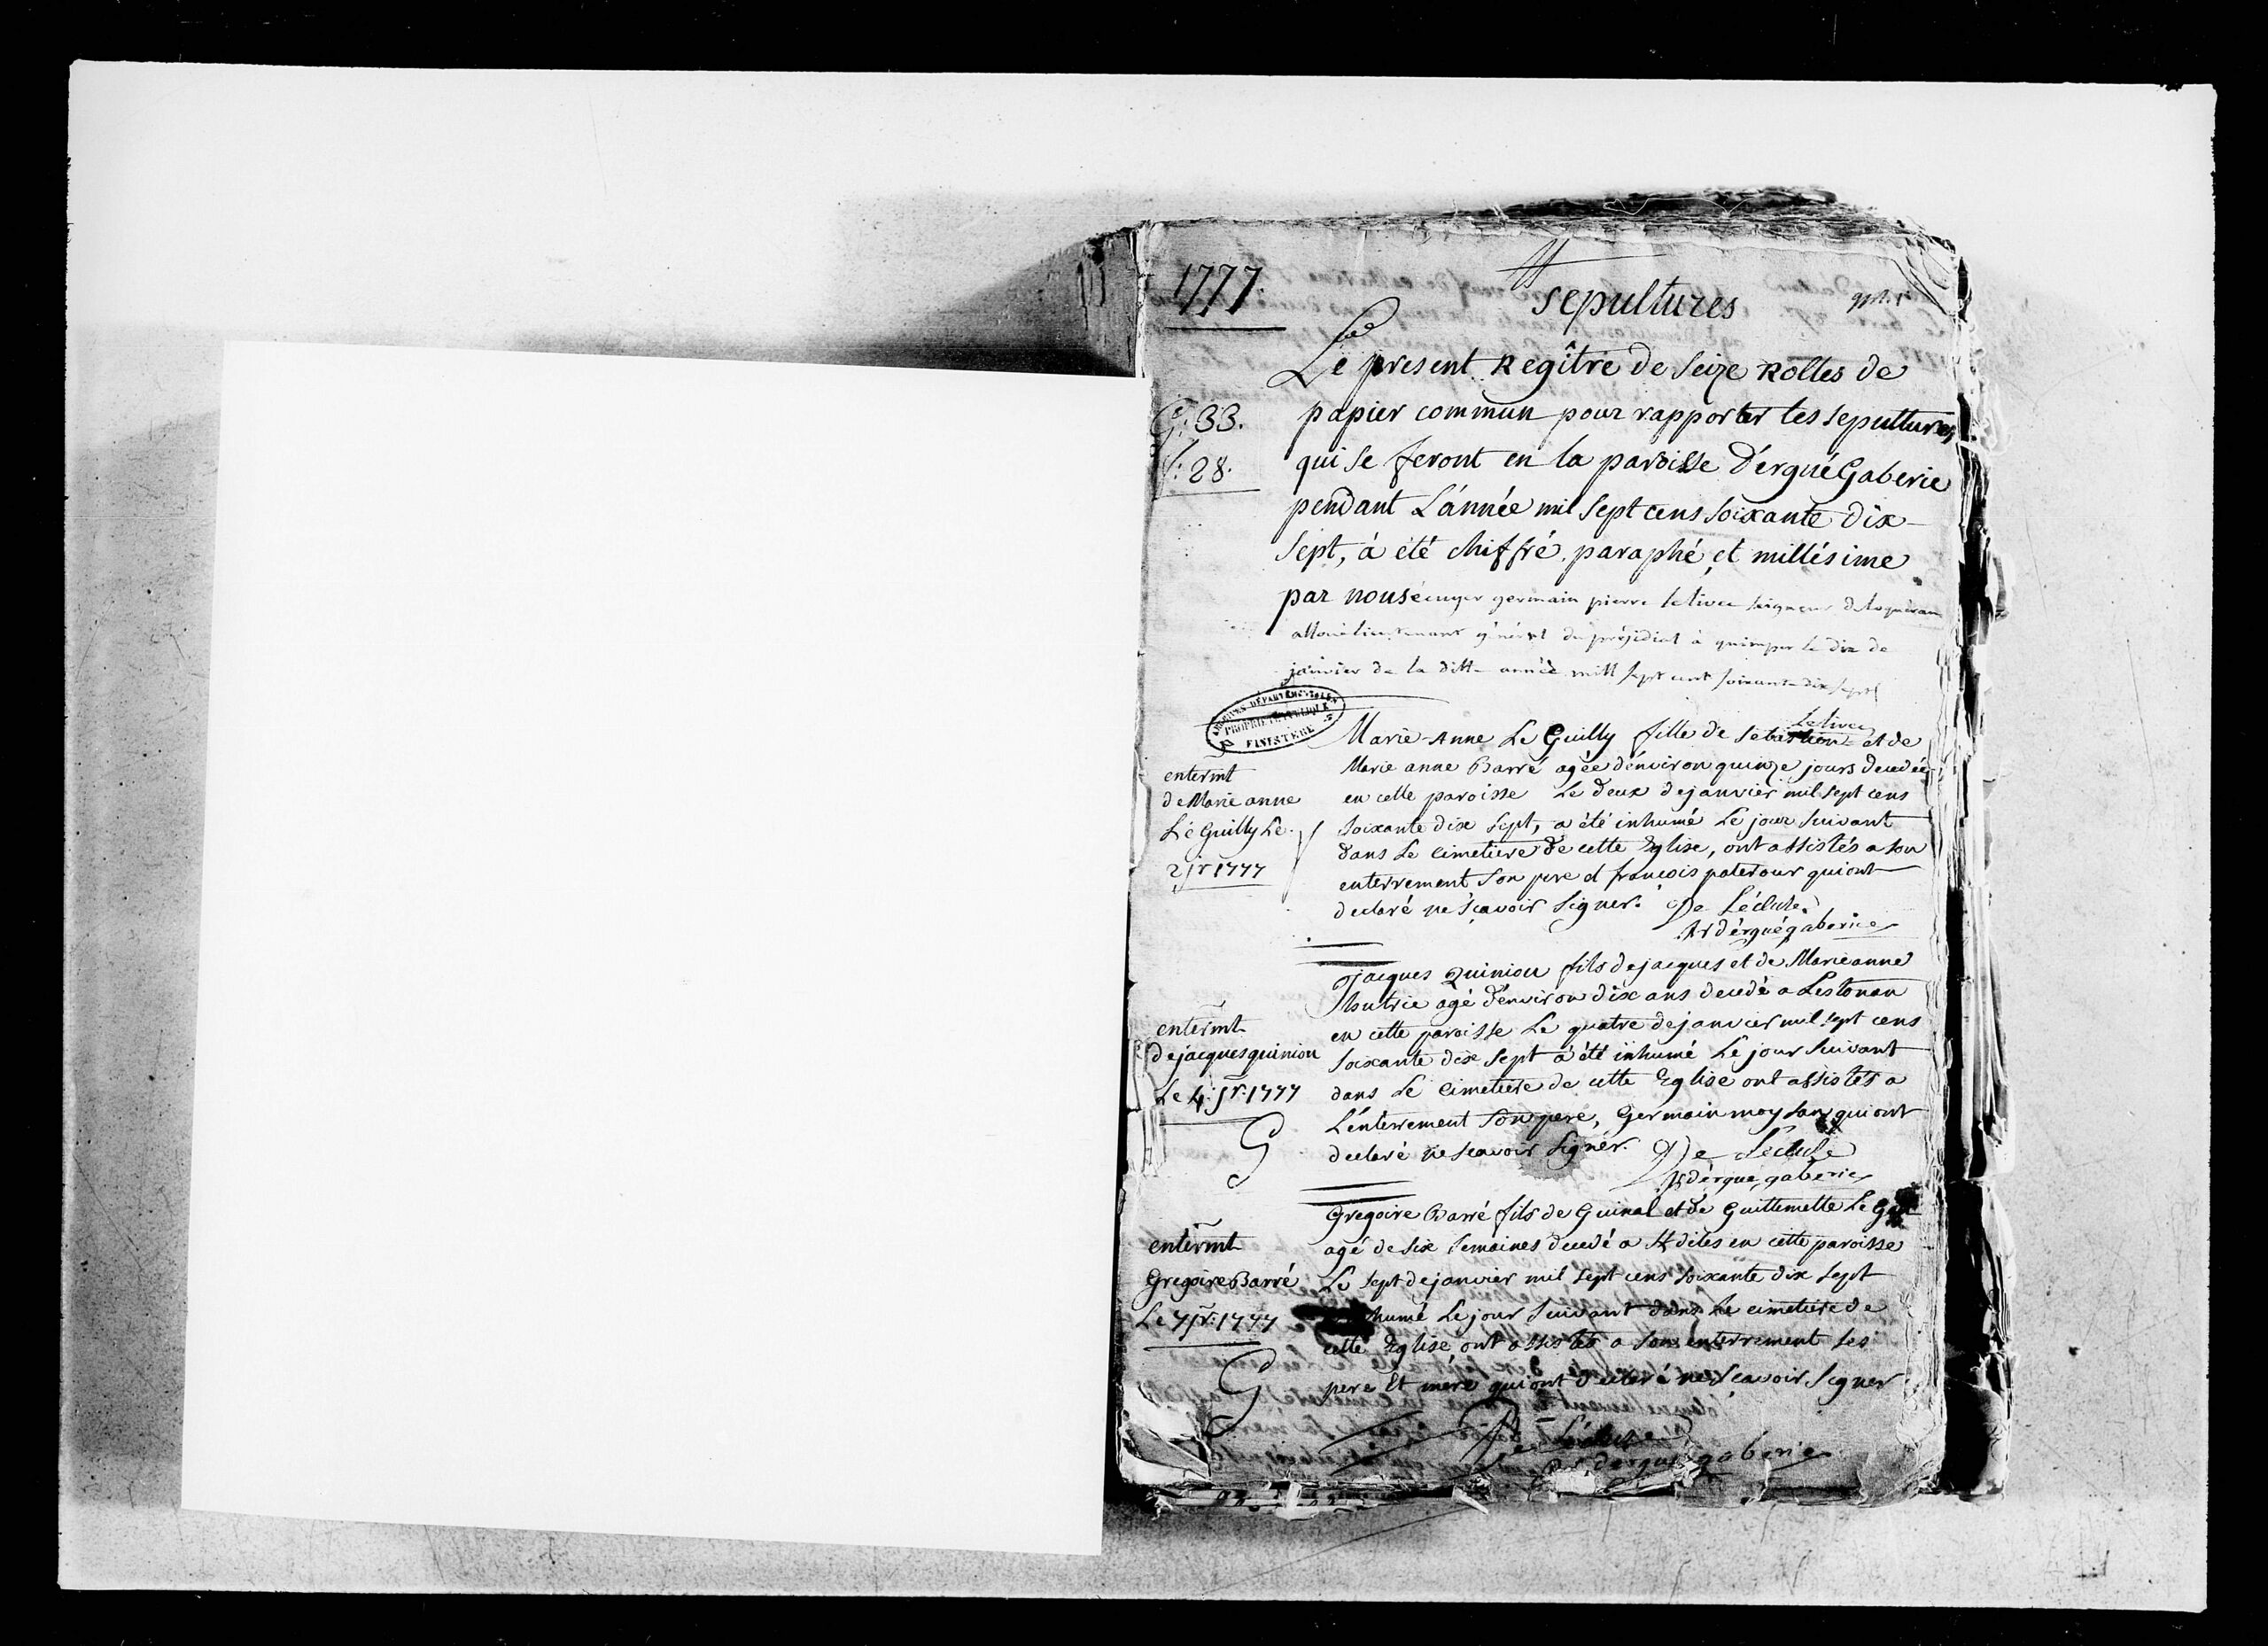 1777.
sepultures
Le present Regître de seize Rolles de
G: 33.
papier commun pour rapporter les sepultures
f: 28.
qui se feront en la paroisse D'ergué Gaberic
pendant L'année mil sept cens soixante Dix
sept, à été chiffré, paraphé, et millésime
par nous écuyer germain pierre letivee seigneur
alloué lieutenant général du présidial à quimper le dix de
janvier de la ditte année mill sept cent soixante dix sept
letivee
ARCHIVES DÉPARTEMENTALES
PROPRIÉTÉ PUBLIQUE
FINISTÈRE
enterm̃t
de Marie anne
Le Guilly Le
2 jr 1777
Marie-Anne Le Guilly fille de sebastien et de
Marie anne Barré agée d'environ quinze jours decedée
en cette paroisse Le deux de janvier mil sept cens
soixante dix sept, a été inhumé Le jour suivant
dans Le cimetiere de cette Eglise, ont assistés a son
enterrement son pere et françois paterour qui ont
declaré ne sçavoir signer. De Lécluse
Rr d'ergué gaberic
enterm̃t
de jacques quiniou
Le 4: jr: 1777
jacques Quiniou fils de jacques et de Marie anne
agé d'environ dix ans decedé a Lestonan
en cette paroisse Le quatre de janvier mil sept cens
soixante dix sept a été inhumé Le jour suivant
dans Le Cimetiere de cette Eglise ont assistés a
L'enterrement son pere, Germain moysan qui ont
declaré ne scavoir signer. De Lécluse
Rr d'ergué gaberic
enterm̃t
Gregoire Barré
Le 7 jr: 1777
Gregoire Barré fils de Guinal et de Guillemette Le
agé de six semaines decedé a en cette paroisse
Le sept de janvier mil sept cens soixante dix sept
humé Le jour suivant dans Le cimetiere de
cette Eglise, ont assistés a son enterrement ses
pere Et mere qui ont declaré ne scavoir signer
De Lécluse
Rr d'ergué gaberic